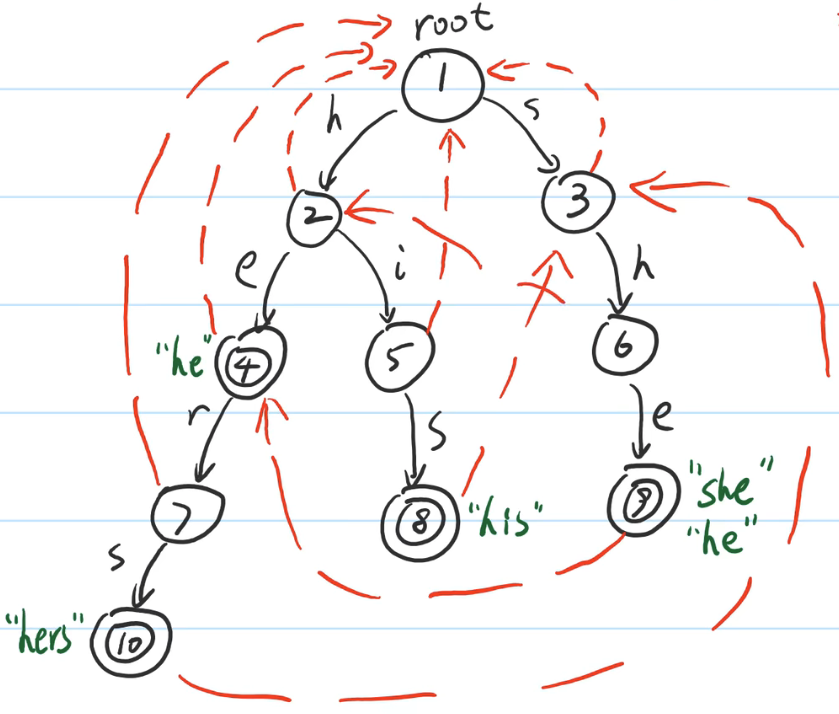 root
1
h
s
2
3
e
i
h
"he"
4
5
6
r
s
e
7
8
"his"
9
"she"
"he"
s
"hers"
10